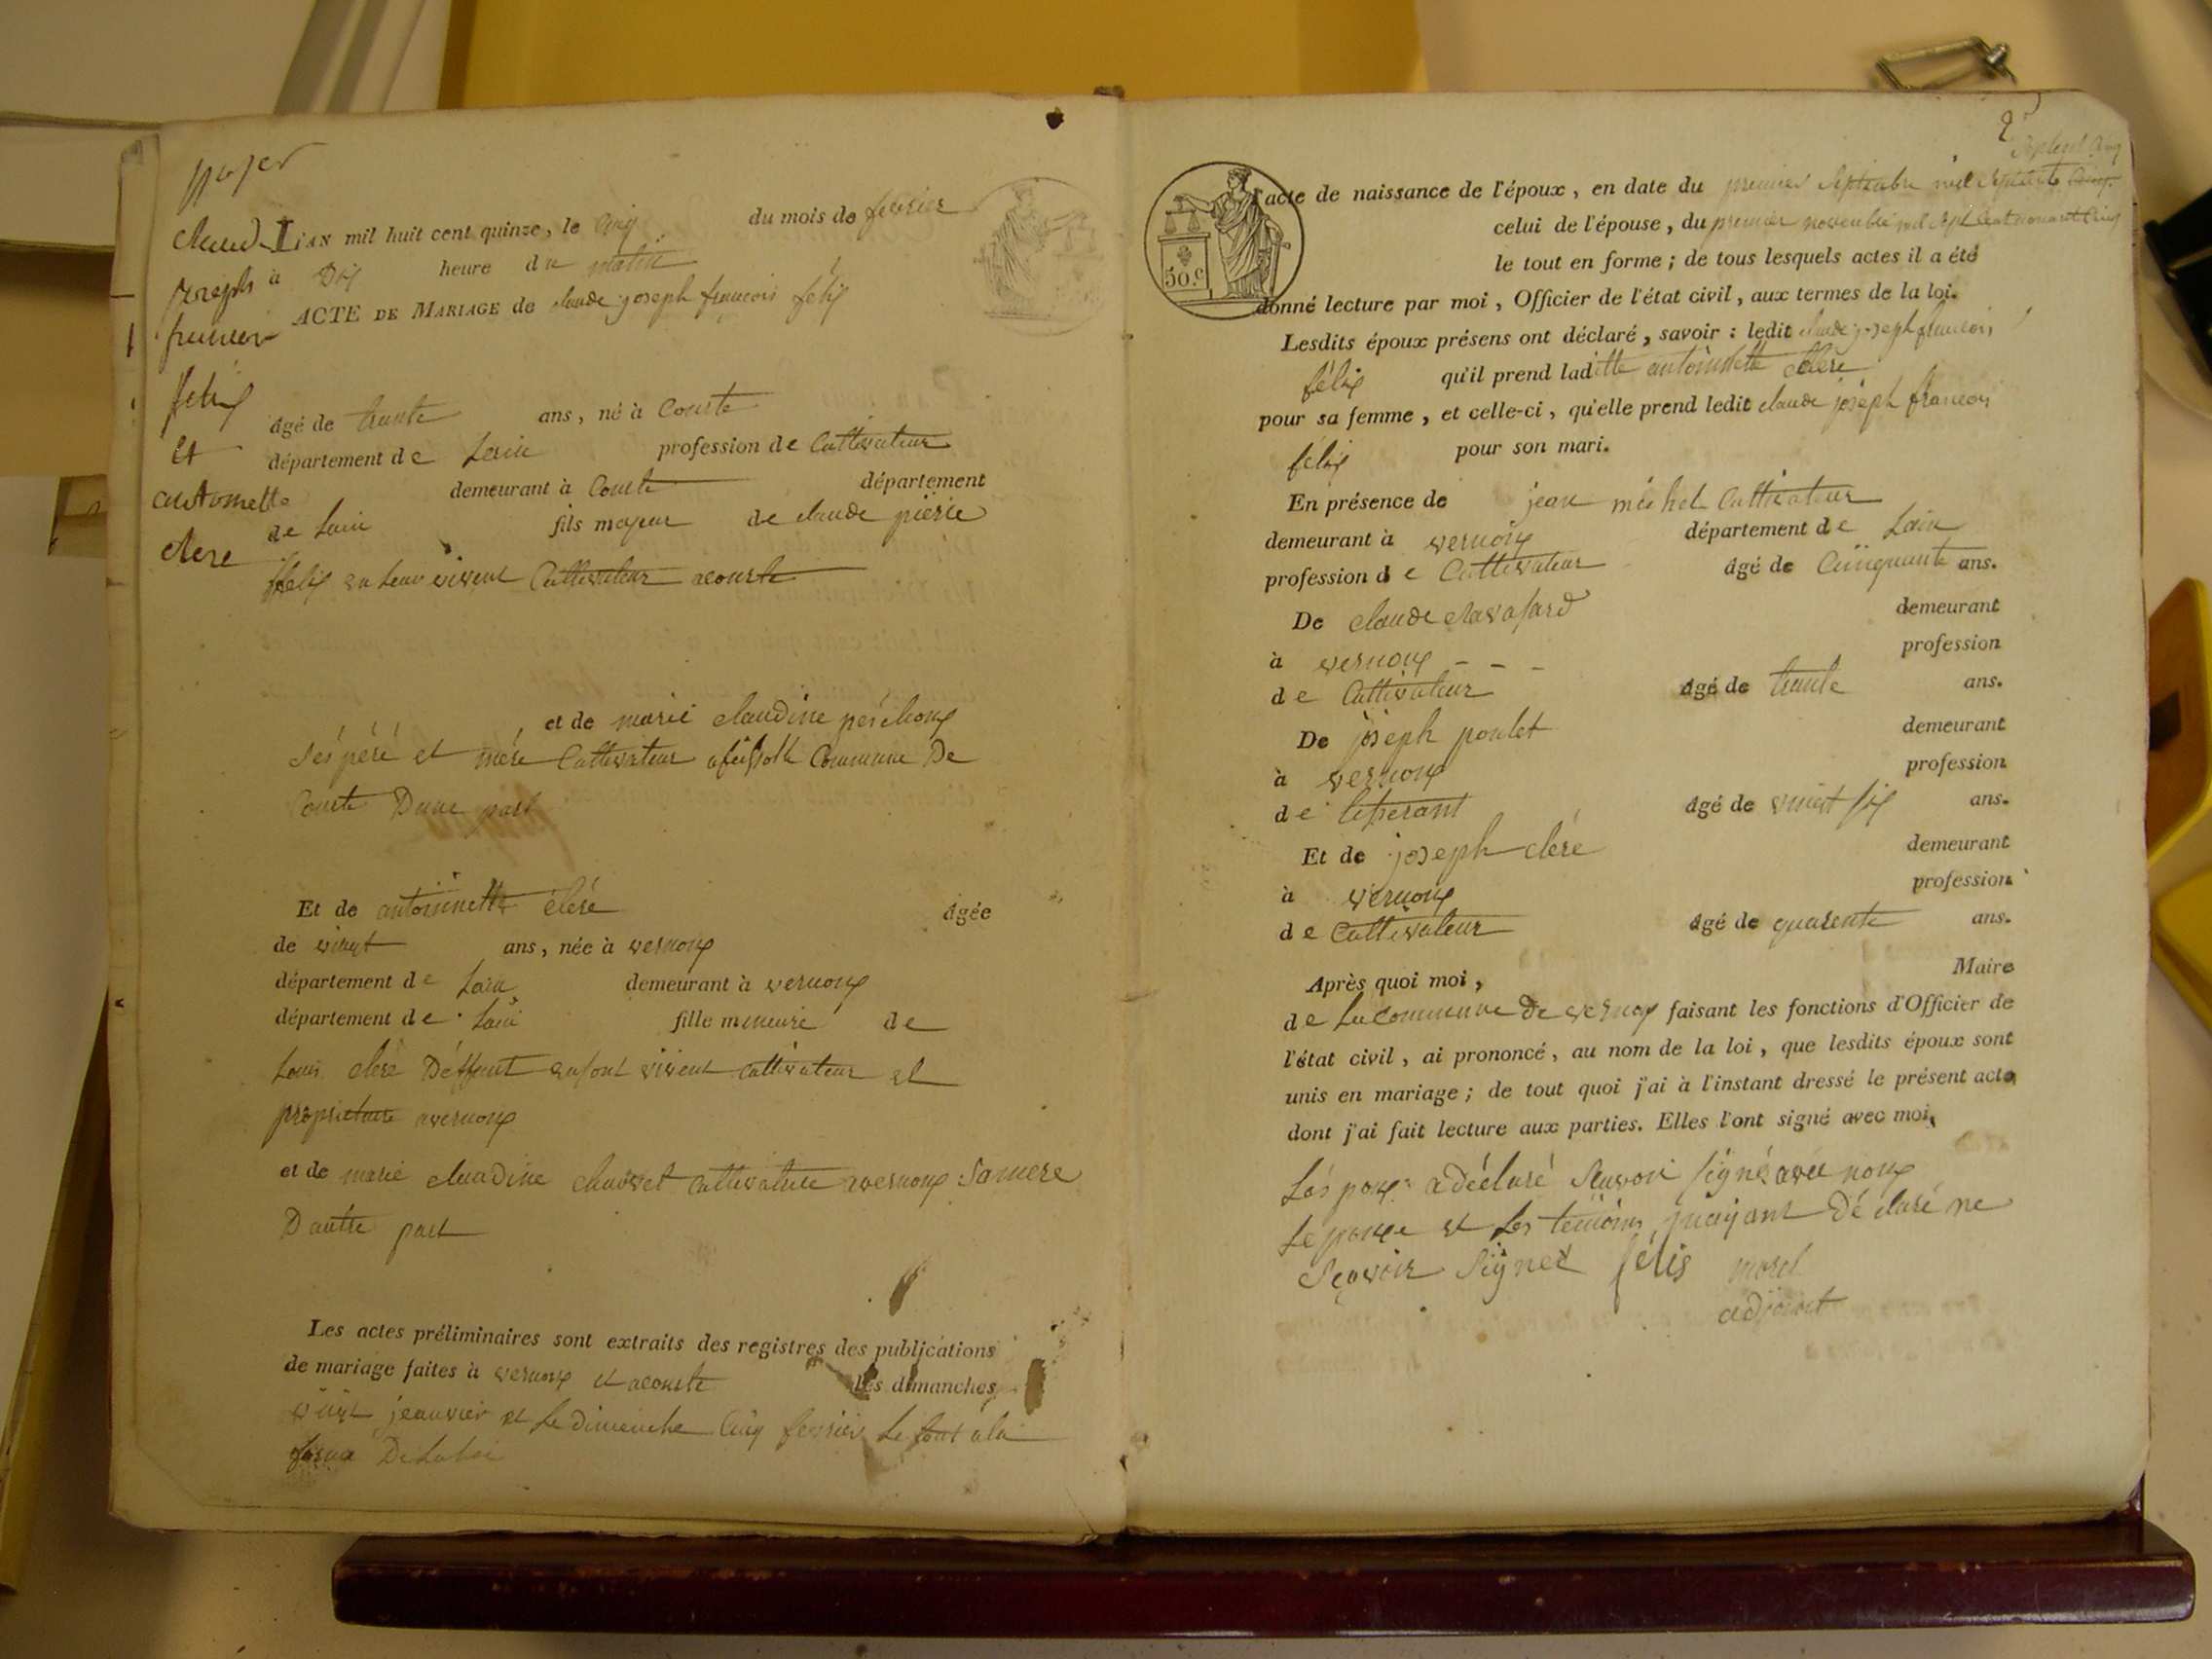 claude
joseph
francois
felix
et
antoinette
clere
L'AN mil huit cent quinze, le cinq du mois de fevrier
à Dix heure du matin
ACTE DE MARIAGE de claude joseph françois félix
âgé de trante ans, né à Courte
département de Lain profession de Cultivateur
demeurant à Courte département
de Lain fils majeur de claude pierre
félix vivent Cultivateur acourte
et de marie claudine
ses péré et mére Cultivateur Commune De
Courte Dune part
Et de antoinette cléré âgée
de vingt ans, née à vernoux
département de Lain demeurant à vernoux
département de Lain fille meneure de
Louis cléré Déffunt vivent cultivateur et
propriétaire avernoux
et de marie cluadine chavvet avernoux sa mere
D autre part
Les actes préliminaires sont extraits des registres des publications
de mariage faites à vernoux et acourte les dimanches
jeanvier et le dimenche Cinq fevrier le tout ala
forme De la loi
2
l'acte de naissance de l'époux, en date du premier Septembre mil
celui de l'épouse, du premier novembre mil sept cent
le tout en forme; de tous lesquels actes il a été
donné lecture par moi, Officier de l'état civil, aux termes de la loi.
50.c
Lesdits époux présens ont déclaré, savoir: ledit claude joseph francois
félix qu'il prend laditte antoinette clere
pour sa femme, et celle-ci, qu'elle prend ledit claude joseph francois
félix pour son mari.
En présence de jean michel Cultivateur
demeurant à vernoux département de Lain
profession de Cultivateur âgé de Cinquante ans.
De claude demeurant
à vernoux - - - profession
de Cultivateur âgé de trante ans.
De joseph poulet demeurant
à vernoux profession
de âgé de vingt six ans.
Et de joseph cléré demeurant
à vernoux profession
de Cultivateur âgé de quarente ans.
Après quoi moi, Maire
de La Commune De vernoux faisant les fonctions d'Officier de
l'état civil, ai prononcé, au nom de la loi, que lesdits époux sont
unis en mariage; de tout quoi j'ai à l'instant dressé le présent acte,
dont j'ai fait lecture aux parties. Elles l'ont signé avec moi,
Lés poux a déclaré signé avec nous
Le pouxe et Les temoins Déclaré ne
Sçavoir Signer félis morel
adjoint